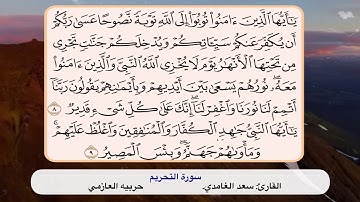 يَٰٓأَيُّهَا ٱلَّذِينَ ءَامَنُوا۟ تُوبُوٓا۟ إِلَى ٱللَّهِ تَوْبَةً نَّصُوحًا عَسَىٰ رَبُّكُمْ
أَن يُكَفِّرَ عَنكُمْ سَيِّـَٔاتِكُمْ وَيُدْخِلَكُمْ جَنَّٰتٍ تَجْرِى
مِن تَحْتِهَا ٱلْأَنْهَٰرُ يَوْمَ لَا يُخْزِى ٱللَّهُ ٱلنَّبِىَّ وَٱلَّذِينَ ءَامَنُوا۟
مَعَهُۥ نُورُهُمْ يَسْعَىٰ بَيْنَ أَيْدِيهِمْ وَبِأَيْمَٰنِهِمْ يَقُولُونَ رَبَّنَآ
أَتْمِمْ لَنَا نُورَنَا وَٱغْفِرْ لَنَآ إِنَّكَ عَلَىٰ كُلِّ شَىْءٍ قَدِيرٌ ٨
يَٰٓأَيُّهَا ٱلنَّبِىُّ جَٰهِدِ ٱلْكُفَّارَ وَٱلْمُنَٰفِقِينَ وَٱغْلُظْ عَلَيْهِمْ
وَمَأْوَىٰهُمْ جَهَنَّمُ وَبِئْسَ ٱلْمَصِيرُ ٩
سورة التحريم
القارئ: سعد الغامدي. حربيه العازمي